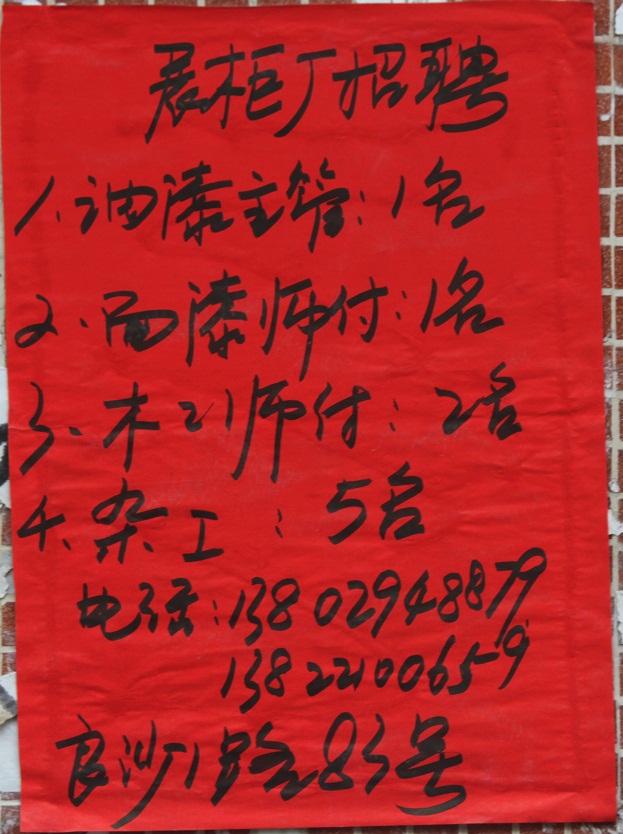 展柜厂招聘
1.油漆主管:1名
2.面漆师付:1名
3.木工师付:2名
4.杂工:5名
电话:13802948879
13822100659
良沙路83号